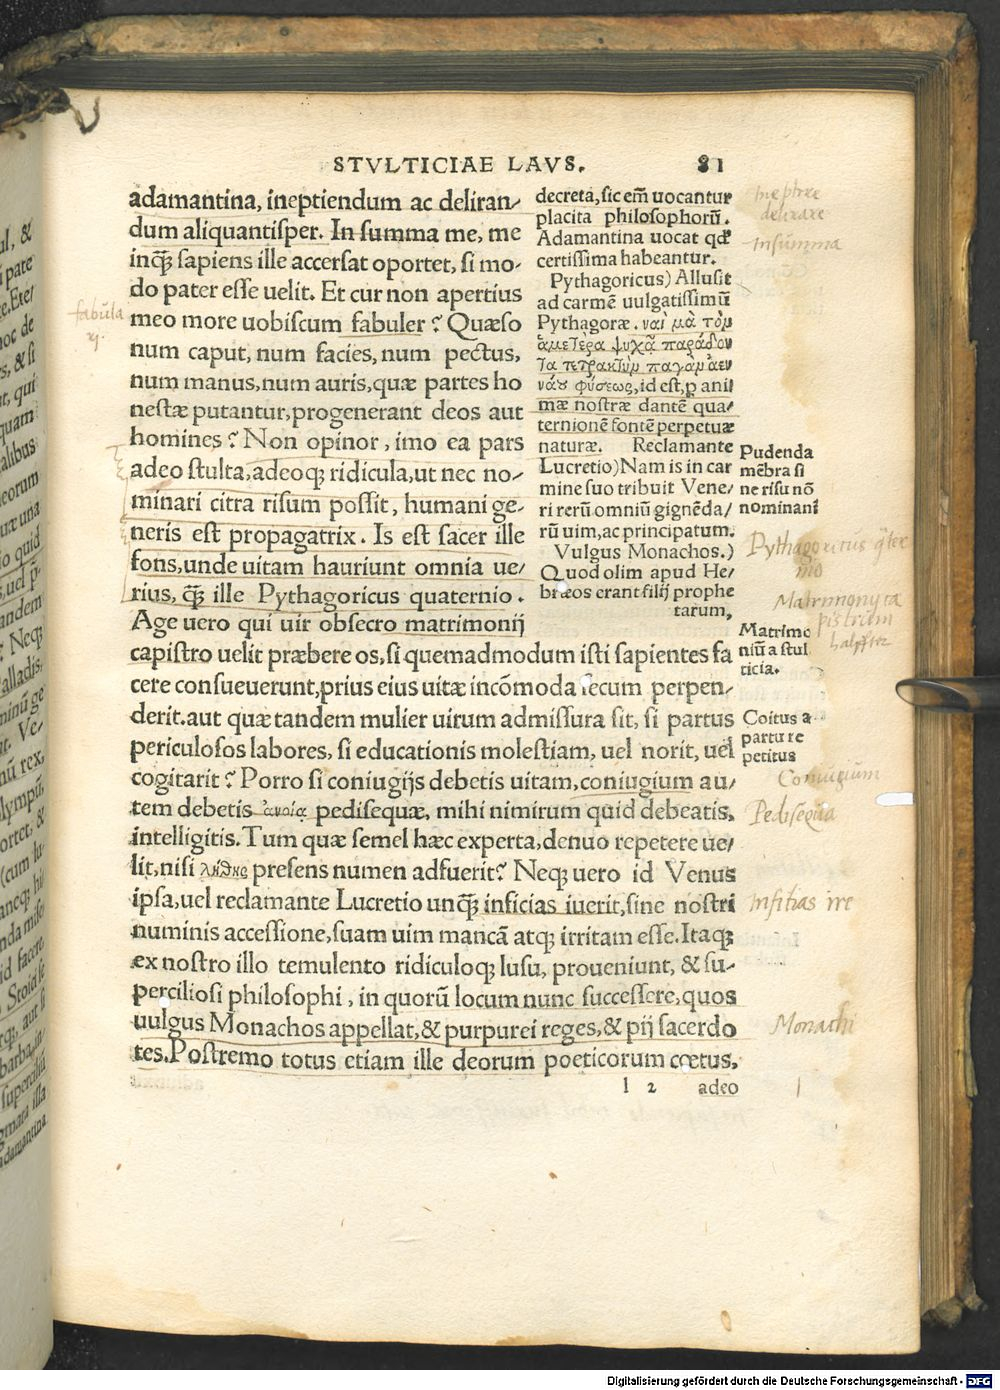 STVLTICIAE LAVS. 81
adamantina, ineptiendum ac deliran-
dum aliquantisper. In summa me, me
inꝗ̃ sapiens ille accersat oportet, si mo-
do pater esse uelit. Et cur non apertius
meo more uobiscum fabuler? Quæso
num caput, num facies, num pectus,
num manus, num auris, quæ partes ho
nestæ putantur, progenerant deos aut
homines? Non opinor, imo ea pars
adeo stulta, adeoqꝫ ridicula, ut nec no-
minari citra risum possit, humani ge-
neris est propagatrix. Is est sacer ille
fons, unde uitam hauriunt omnia ue-
rius, ꝗ̃ ille Pythagoricus quaternio.
Age uero qui uir obsecro matrimonij
capistro uelit præbere os, si quemadmodum isti sapientes fa
cere consueuerunt, prius eius uitæ incõmoda secum perpen-
derit. aut quæ tandem mulier uirum admissura sit, si partus
periculosos labores, si educationis molestiam, uel norit, uel
cogitarit? Porro si coniugijs debetis uitam, coniugium au-
tem debetis ἀνοίᾳ pedisequæ, mihi nimirum quid debeatis,
intelligitis. Tum quæ semel hæc experta, denuo repetere ue-
lit, nisi λήθης presens numen adfuerit? Neqꝫ uero id Venus
ipsa, uel reclamante Lucretio unꝗ̃ inficias iuerit, sine nostri
numinis accessione, suam uim mancã atqꝫ irritam esse. Itaqꝫ
ex nostro illo temulento ridiculoqꝫ lusu, proueniunt, & su-
perciliosi philosophi, in quorũ locum nunc successere, quos
uulgus Monachos appellat, & purpurei reges, & pij sacerdo
tes. Postremo totus etiam ille deorum poeticorum cœtus,
l 2 adeo
decreta, sic em̃ uocantur
placita philosophorũ.
Adamantina uocat qđ
certissima habeantur.
Pythagoricus) Allusit
ad carmẽ uulgatissimũ
Pythagoræ. ναὶ μὰ τὸν
ἁμετέρᾳ ψυχᾷ παράδον
τα τετρακτὺν παγὰν ἀεν
νάου φύσεως, id est, p ani
mæ nostræ dantẽ qua-
ternionẽ fontẽ perpetuæ
naturæ. Reclamante
Lucretio) Nam is in car
mine suo tribuit Vene-
ri rerũ omniũ gignẽda-
rũ uim, ac principatum.
Vulgus Monachos.)
Quod olim apud He-
bræos erant filij prophe
tarum,
Pudenda
mẽbra si
ne risu nõ
nominant
Matrimo
niũ a stul
ticia.
Coitus a
partu re
petitus
fabula
ineptire
delirare
In summa
Matrimonij ca
pistrum
halffter
Coniugium
Pedisequa
Infitias ire
Monachi
Digitalisierung gefördert durch die Deutsche Forschungsgemeinschaft - DFG